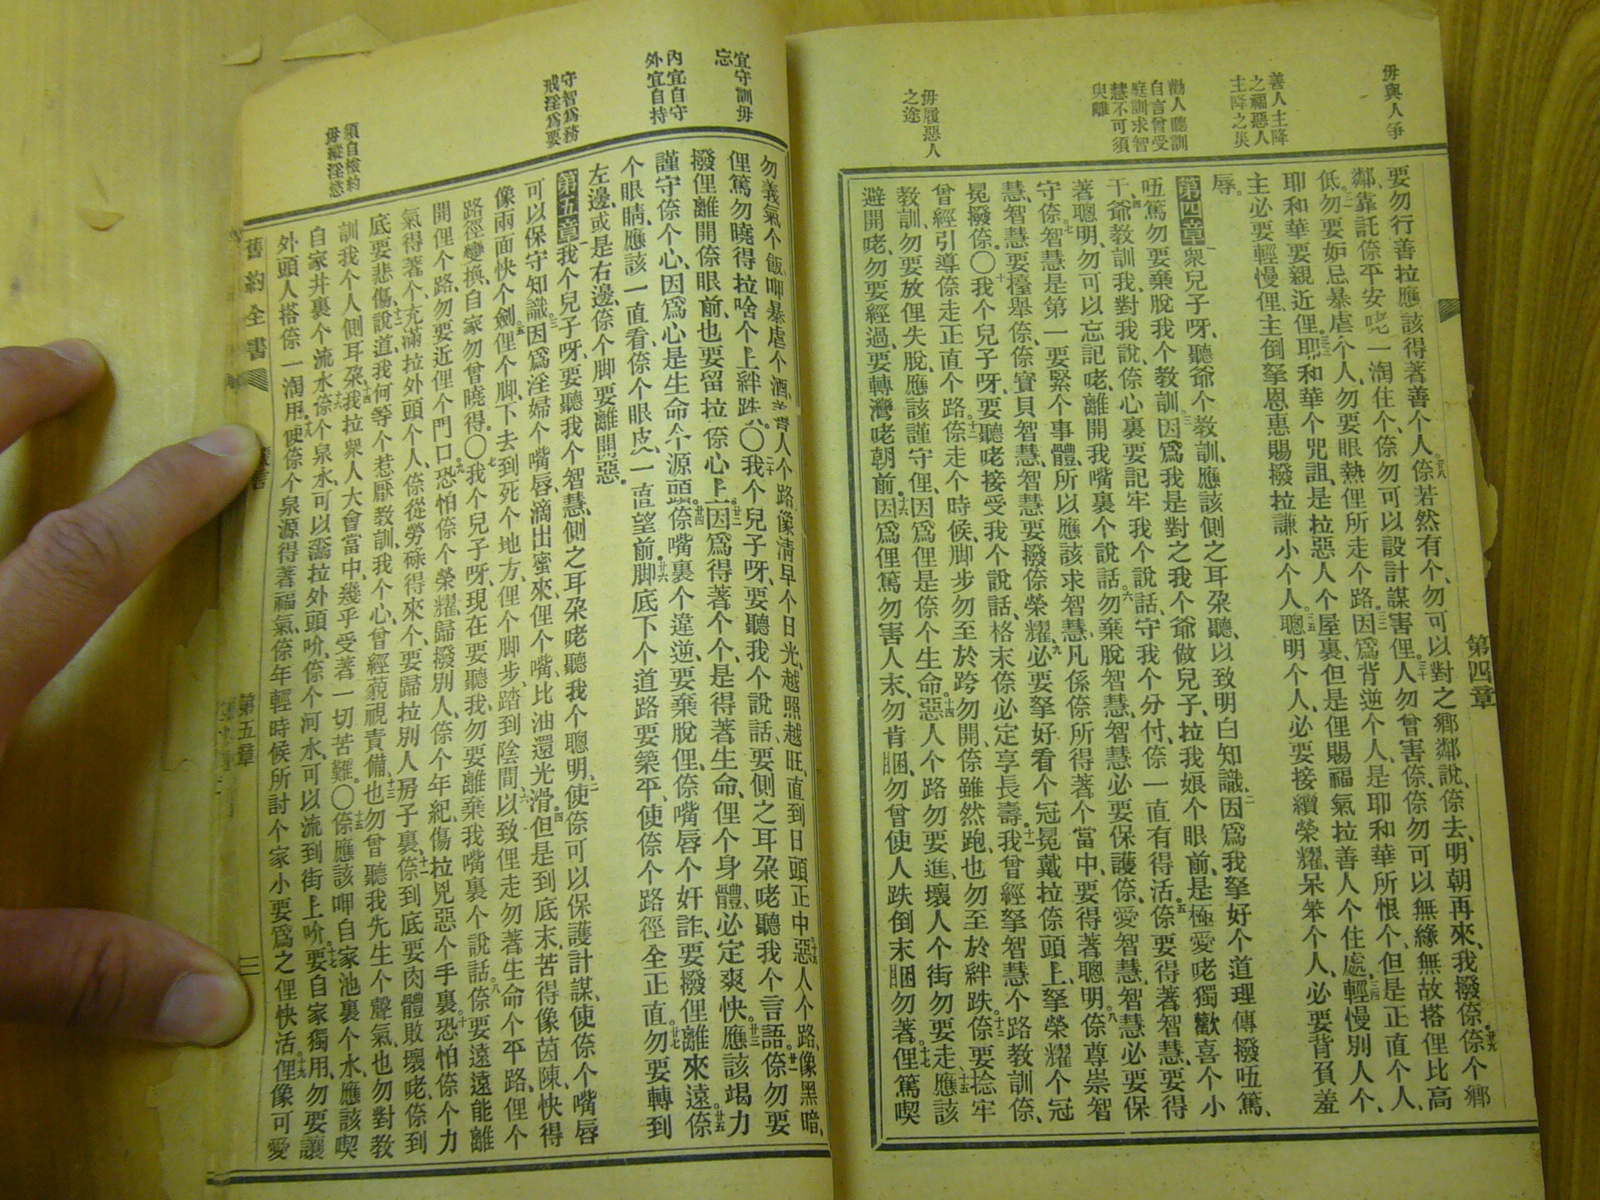 毋與人爭
善人主降
之福惡人
主降之災
勸人聽訓
自言曾受
庭訓求智
慧不可須
臾離
毋履惡人
之途
第四章
要勿行善拉應該得著善个人倷若然有个勿可以對之鄉鄰說倷去明朝再來我撥倷倷个鄉
鄰靠託倷平安咾一淘住个倷勿可以設計謀害俚人勿曾害倷倷勿可以無緣無故搭俚比高
低勿要妒忌暴虐个人勿要眼熱俚所走个路因爲背逆个人是耶和華所恨个但是正直个人
耶和華要親近俚耶和華个咒詛是拉惡人个屋裏但是俚賜福氣拉善人个住處輕慢別人个
主必要輕慢俚主倒拏恩惠賜撥拉謙小个人聰明个人必要接續榮耀呆笨个人必要背負羞
辱
第四章衆兒子呀聽爺个教訓應該側之耳朶聽以致明白知識因爲我拏好个道理傳撥㕶篤
㕶篤勿要棄脫我个教訓因爲我是對之我个爺做兒子拉我娘个眼前是極愛咾獨歡喜个小
干爺教訓我對我說倷心裏要記牢我个說話守我个分付倷一直有得活倷要得著智慧要得
著聰明勿可以忘記咾離開我嘴裏个說話勿棄脫智慧智慧必要保護倷愛智慧智慧必要保
守倷智慧是第一要緊个事體所以應該求智慧凡係倷所得著个當中要得著聰明倷尊崇智
慧智慧要擡舉倷倷寶貝智慧智慧要撥倷榮耀必要拏好看个冠冕戴拉倷頭上拏榮耀个冠
冕撥倷〇我个兒子呀要聽咾接受我个說話格末倷必定享長壽我曾經拏智慧个路教訓倷
曾經引導倷走正直个路倷走个時候脚步勿至於跨勿開倷雖然跑也勿至於絆跌倷要捻牢
教訓勿要放俚失脫應該謹守俚因爲俚是倷个生命惡人个路勿要進壞人个街勿要走應該
避開咾勿要經過要轉灣咾朝前因爲俚篤勿害人末勿肯睏勿曾使人跌倒末睏勿著俚篤喫
宜守訓毋
忘
內宜自守
外宜自持
守智爲務
戒淫爲要
須自檢約
毋縱淫慾
勿義氣个飯呷暴虐个酒善人个路像淸早个日光越照越旺直到日頭正中惡人个路像黑暗
俚篤勿曉得拉啥个上絆跌〇我个兒子呀要聽我个說話要側之耳朶咾聽我个言語倷勿要
撥俚離開倷眼前也要留拉倷心上因爲得著个个是得著生命俚个身體必定爽快應該竭力
謹守倷个心因爲心是生命个源頭倷嘴裏个違逆要棄脫俚倷嘴唇个奸詐要撥俚離來遠倷
个眼睛應該一直看倷个眼皮一直望前脚底下个道路要築平使倷个路徑全正直勿要轉到
左邊或是右邊倷个脚要離開惡
第五章我个兒子呀要聽我个智慧側之耳朶咾聽我个聰明使倷可以保護計謀使倷个嘴唇
可以保守知識因爲淫婦个嘴唇滴出蜜來俚个嘴比油還光滑但是到底末苦得像茵陳快得
像兩面快个劍俚个脚下去到死个地方俚个脚步踏到陰間以致俚走勿著生命个平路俚个
路徑變換自家勿曾曉得〇我个兒子呀現在要聽我勿要離棄我嘴裏个說話倷要遠遠能離
開俚个路勿要近俚个門口恐怕倷个榮耀歸撥別人倷个年紀傷拉兇惡个手裏恐怕倷个力
氣得著个充滿拉外頭个人倷從勞碌得來个要歸拉別人房子裏倷到底要肉體敗壞咾倷到
底要悲傷說道我何等个惹厭教訓我个心曾經藐視責備也勿曾聽我先生个聲氣也勿對教
訓我个人側耳朶我拉衆人大會當中幾乎受著一切苦難〇倷應該呷自家池裏个水應該喫
自家井裏个流水倷个泉水可以流拉外頭吤倷个河水可以流到街上吤要自家獨用勿要讓
外頭人搭倷一淘用使倷个泉源得著福氣倷年輕時候所討个家小要爲之俚快活俚像可愛
舊約全書
第五章